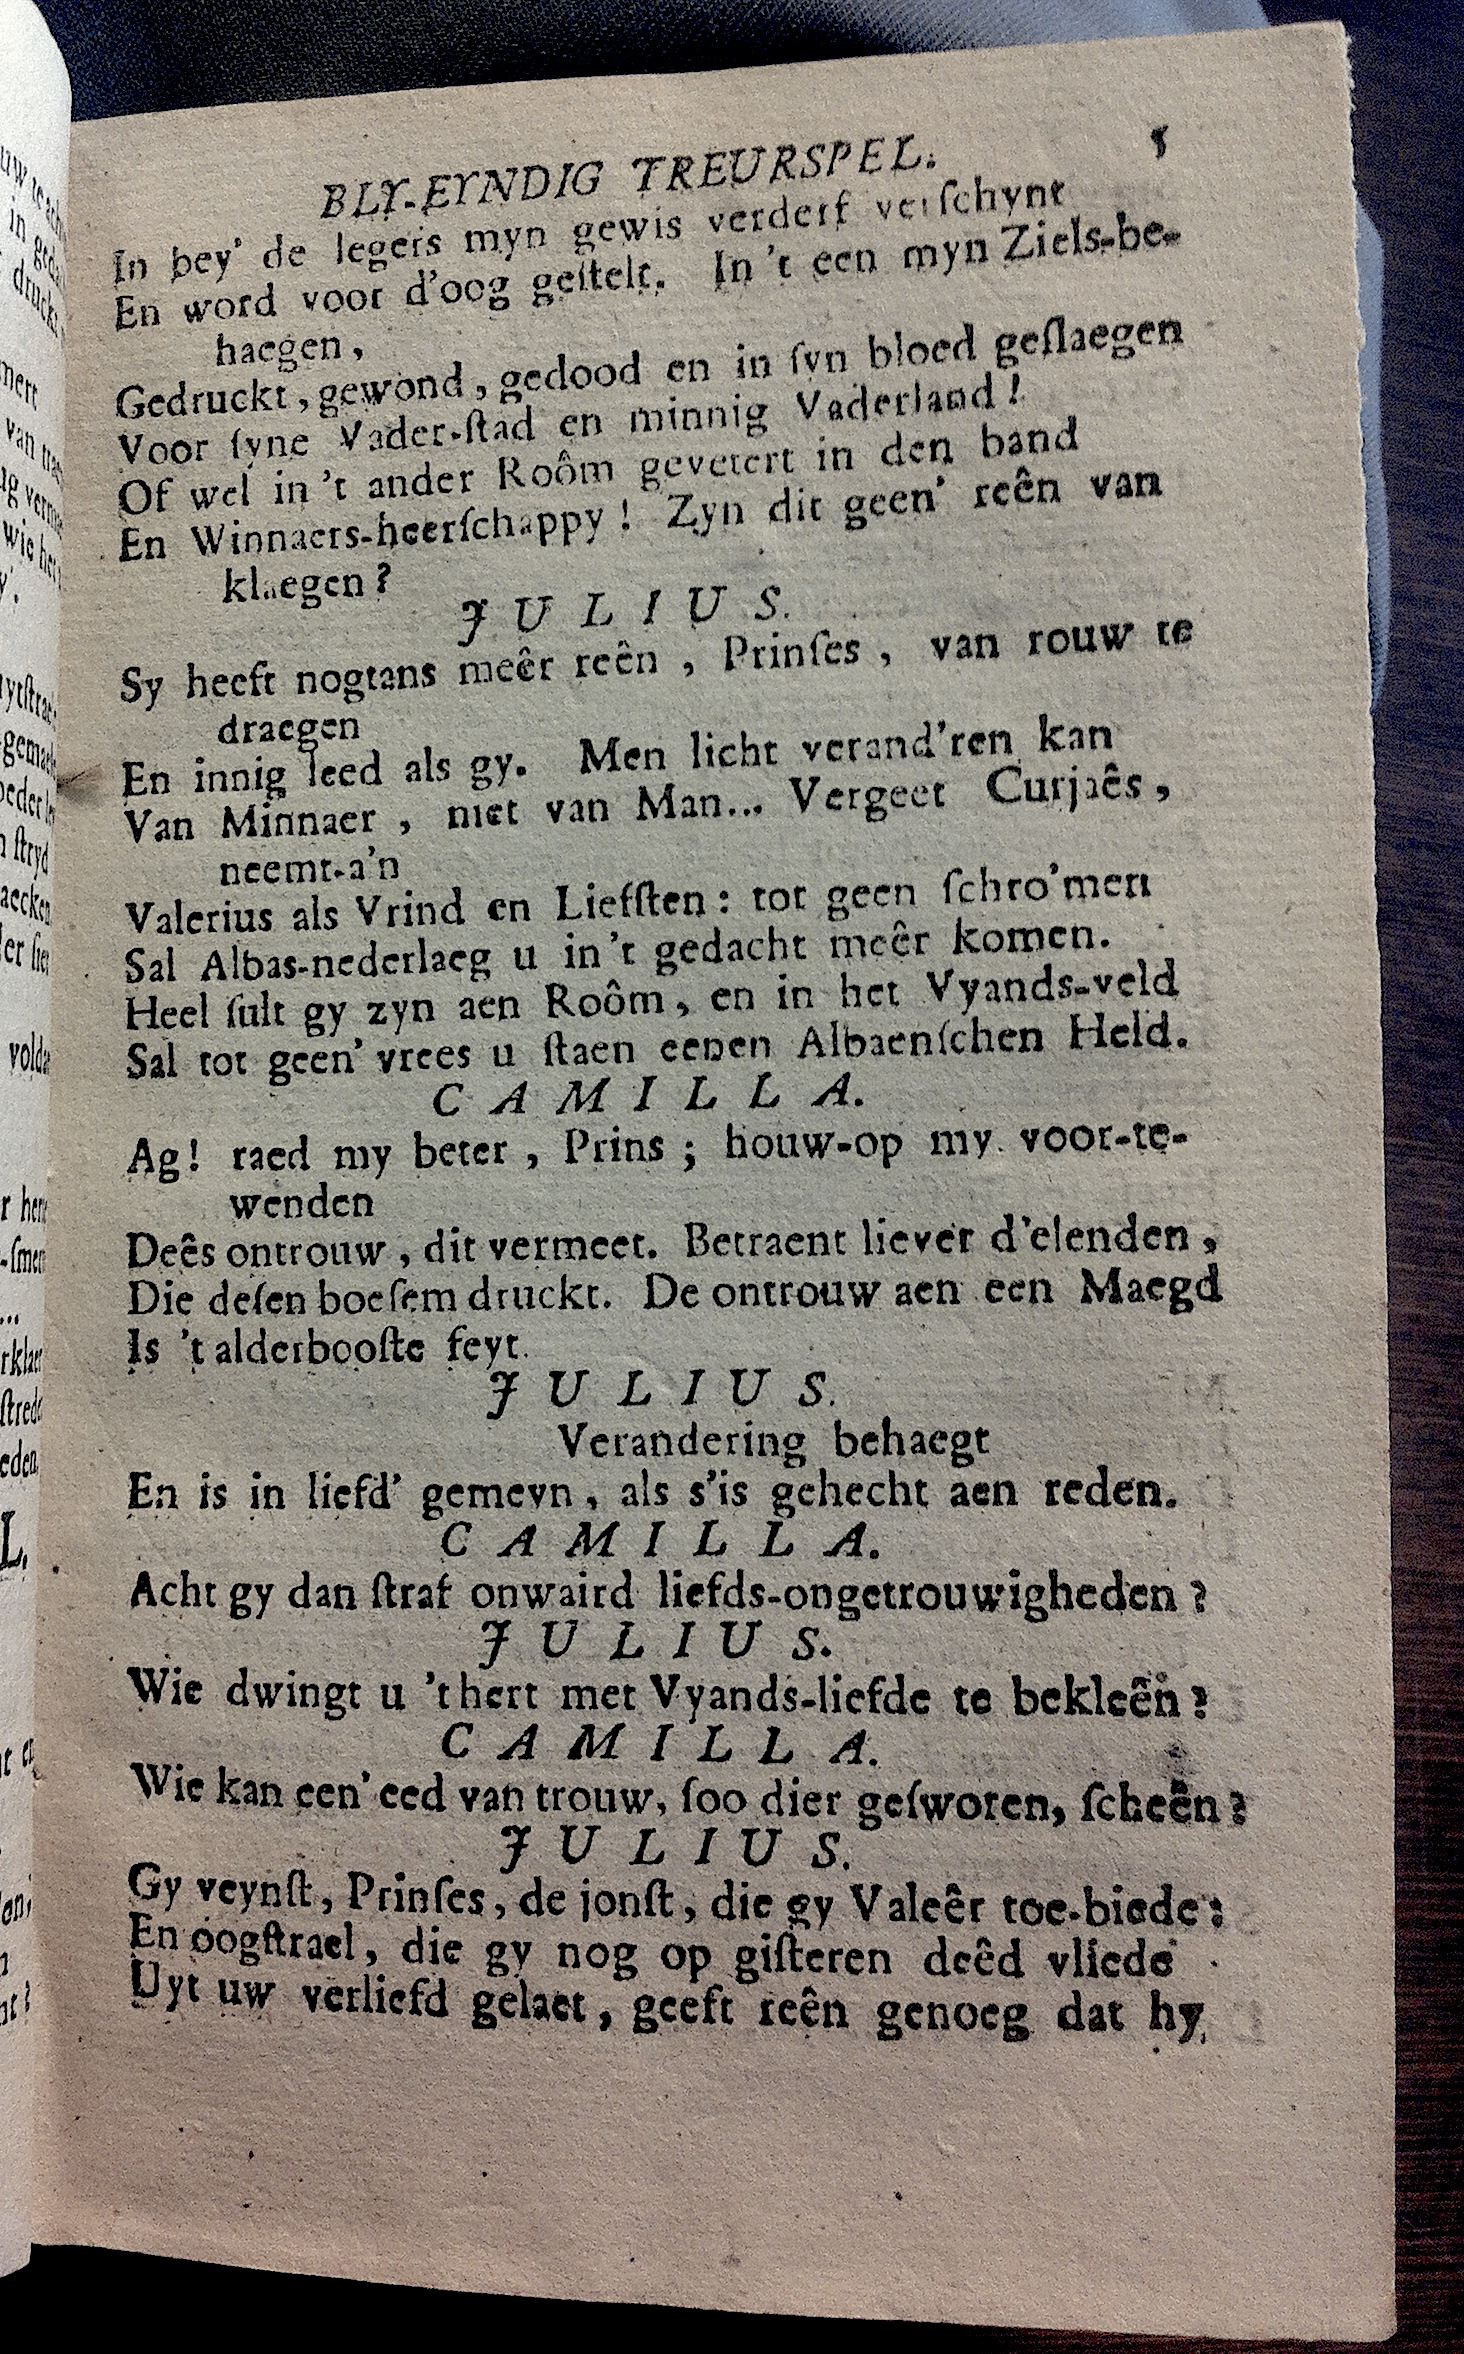 BLY-EYNDIG TREURSPEL. 5
In bey' de legers myn gewis verderf verſchynt
En word voor d'oog geſtelt. In 't een myn Ziels-be-
haegen,
Gedruckt, gewond, gedood en in ſyn bloed geſlaegen
Voor ſyne Vader-ſtad en minnig Vaderland!
Of wel in 't ander Roôm gevetert in den band
En Winnaers-heerſchappy! Zyn dit geen' reên van
klaegen?
JULIUS.
Sy heeft nogtans meêr reên, Prinſes, van rouw te
draegen
En innig leed als gy. Men licht verand'ren kan
Van Minnaer, niet van Man... Vergeet Curjaês,
neemt-a'n
Valerius als Vrind en Liefſten: tot geen ſchro'men
Sal Albas-nederlaeg u in 't gedacht meêr komen.
Heel ſult gy zyn aen Roôm, en in het Vyands-veld
Sal tot geen' vrees u ſtaen eenen Albaenſchen Held.
CAMILLA.
Ag! raed my beter, Prins; houw-op my voor-te-
wenden
Deês ontrouw, dit vermeet. Betraent liever d'elenden,
Die deſen boeſem druckt. De ontrouw aen een Maegd
Is 't alderbooſte feyt.
JULIUS.
Verandering behaegt
En is in liefd' gemeyn, als s'is gehecht aen reden.
CAMILLA.
Acht gy dan ſtraf onwaird liefds-ongetrouwigheden?
JULIUS.
Wie dwingt u 't hert met Vyands-liefde te bekleên?
CAMILLA.
Wie kan een' eed van trouw, ſoo dier geſworen, ſcheên?
JULIUS.
Gy veynſt, Prinſes, de jonſt, die gy Valeêr toe-biede:
En oogſtrael, die gy nog op giſteren deêd vliede
Uyt uw verliefd gelaet, geeft reên genoeg dat hy